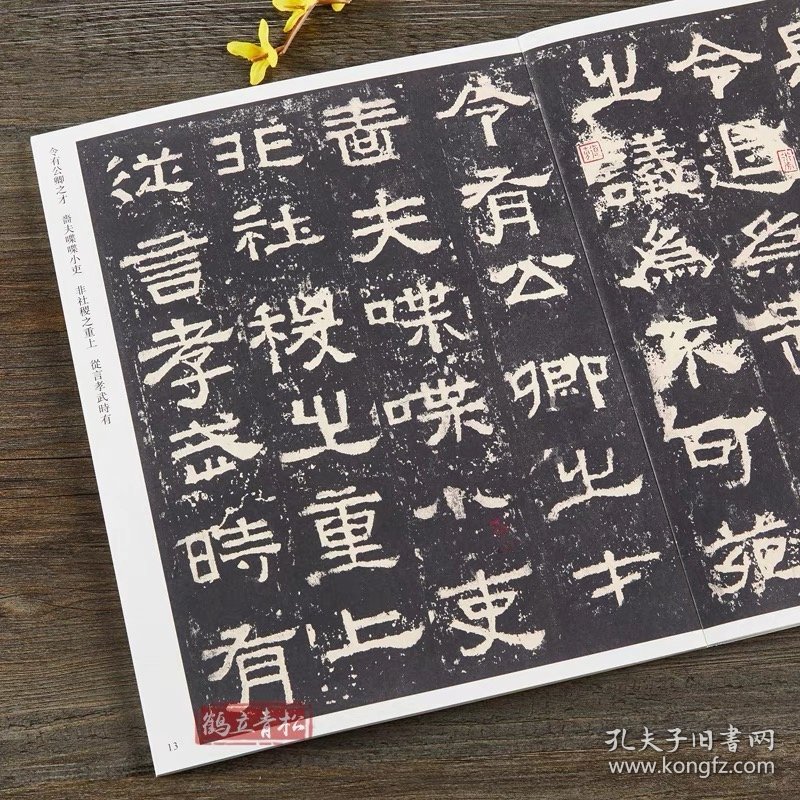 令退為
之議為不可苑
令有公卿之才
嗇夫喋喋小吏
非社稷之重上
從言孝武時有
令有公卿之才　嗇夫喋喋小吏　非社稷之重上　從言孝武時有
13
鹤立青松
孔夫子旧书网
www.kongfz.com